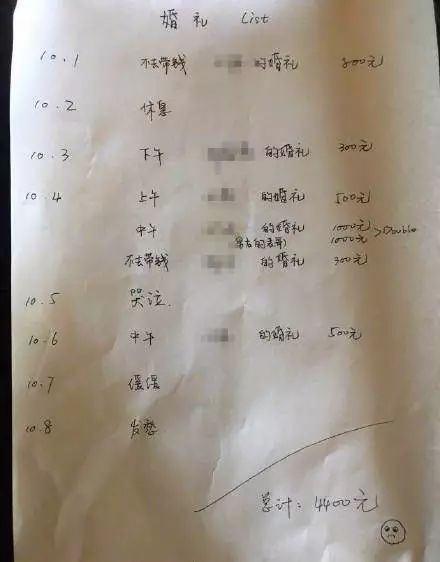 婚礼 List
10.1 不去带钱 的婚礼 800元
10.2 休息
10.3 下午 的婚礼 300元
10.4 上午 的婚礼 500元
中午 的婚礼 1000元 >Double
(男友的表哥) 1000元
不去带钱 的婚礼 300元
10.5 哭泣.
10.6 中午 的婚礼 500元
10.7 缓缓
10.8 发愁
总计: 4400元